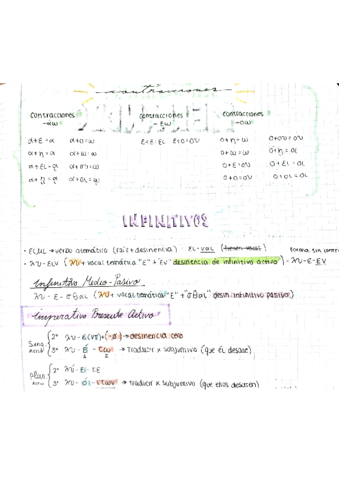 contracciones
Contracciones -αω
contracciones -εω
contracciones -οω
α+ε = α α+ο = ω ε+ε = ει ε+ο = ου ο+η = ω ο+ου = ου
α+η = α α+ω = ω ο+ω = ω ο+ει = οι
α+ει = ᾳ ο+ε = ου
α+οι = ῳ ο+ο = ου ο+οι = οι
INFINITIVOS
· verbo atemático (raíz + desinencia) - ει-ναι
· λυ-ειν (λυ + vocal temática "ε" + "εν" desinencia de infinitivo activo) - λυ-ε-εν
Infinitivo Medio-Pasivo
λυ - ε - σθαι (λυ + vocal temática "ε" + "σθαι" desin. infinitivo pasivo)
Imperativo Presente Activo
Sing. 2ª λυ-ε → desinencia cero
3ª λυ-έ-τω → Traducir x subjuntivo (que él desate)
1 2
Plur. 2ª λύ-ε-τε
3ª λυ-ό-ντων → Traducir x subjuntivo (que ellos desaten)